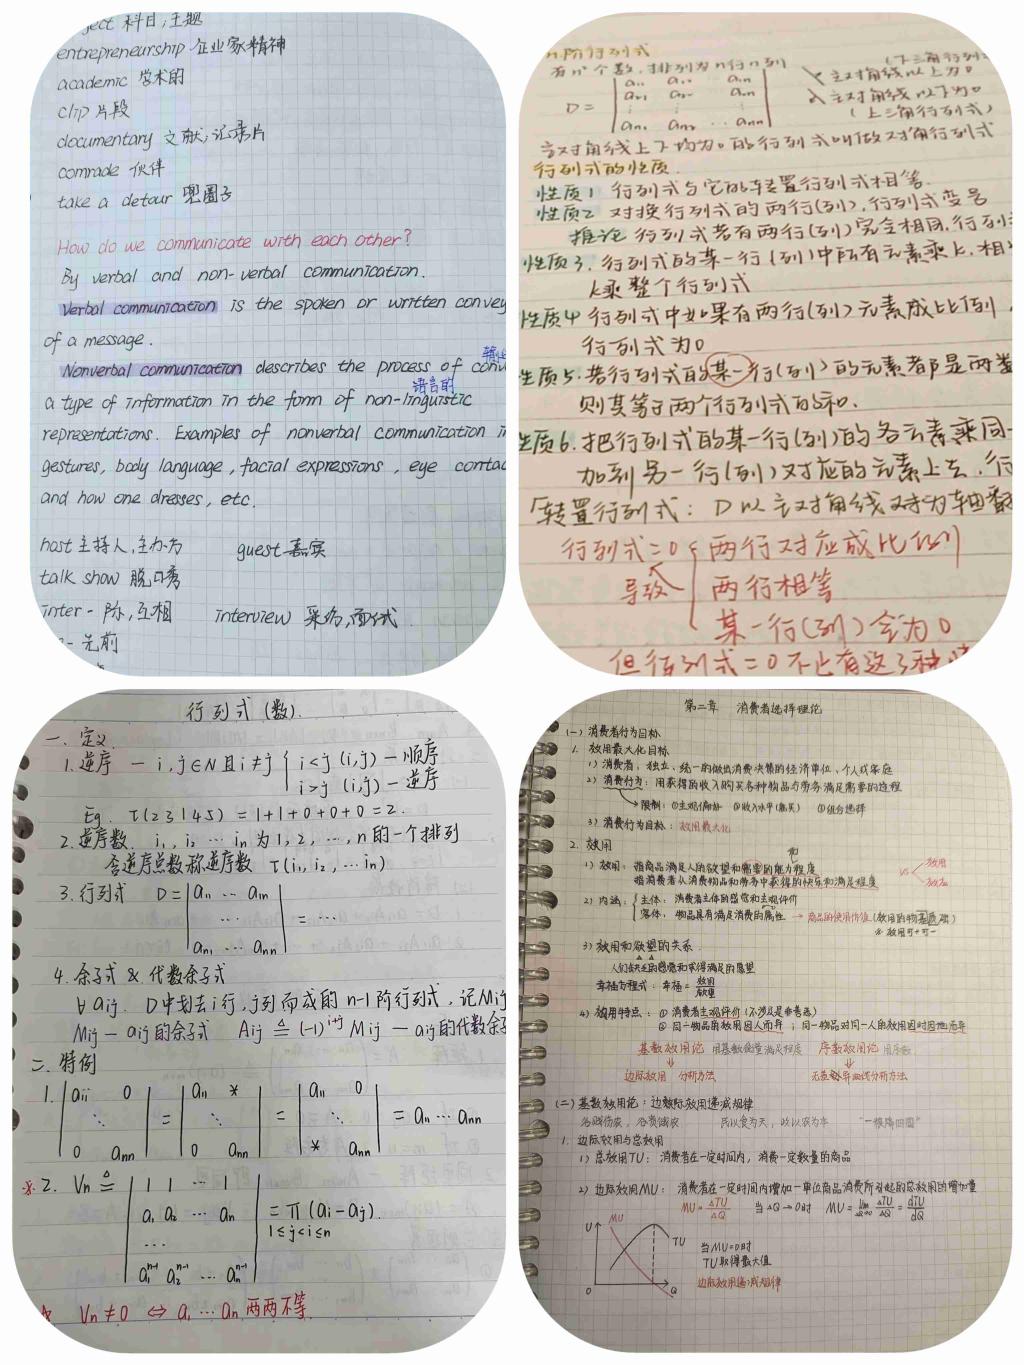 ject 科目;主题
entrepreneurship 企业家精神
academic 学术的
clip 片段
documentary 文献;记录片
comrade 伙伴
take a detour 兜圈子
How do we communicate with each other?
By verbal and non-verbal communication.
Verbal communication is the spoken or written convey
of a message.
Nonverbal communication describes the process of conv
语言的
a type of information in the form of non-linguistic
representations. Examples of nonverbal communication in
gestures, body language, facial expressions, eye contac
and how one dresses, etc.
host 主持人,主办方 guest 嘉宾
talk show 脱口秀
inter- 际,互相 interview 采访,面试
- 先前
n阶行列式
有n²个数,排列为n行n列
(下三角行列式
主对角线以上为0
主对角线以下为0
(上三角行列式)
D =
a11 a12 a1n
a21 a22 a2n
an1 an2 … ann
主对角线上下均为0的行列式叫做对角行列式
行列式的性质
性质1 行列式与它的转置行列式相等.
性质2 对换行列式的两行(列),行列式变号
推论 行列式若有两行(列)完全相同,行列式
性质3. 行列式的某一行(列)中所有元素乘k,相
k乘整个行列式
性质4 行列式中如果有两行(列)元素成比例
行列式为0
性质5. 若行列式的某一行(列)的元素都是两类
则其等于两个行列式的和.
性质6. 把行列式的某一行(列)的各元素乘同一
加到另一行(列)对应的元素上去,行
「转置行列式: D以主对角线对为轴翻
行列式=0 { 两行对应成比例
导致 两行相等
某一行(列)全为0
但行列式=0不止有这3种情
行列式(数).
一. 定义
1. 逆序 — i,j∈N且i≠j { i<j (i,j) — 顺序
i>j (i,j) — 逆序
Eg. τ(23145) = 1+1+0+0+0 = 2.
2. 逆序数. i1, i2 … in 为1, 2, …, n的一个排列
含逆序点数称逆序数 τ(i1, i2, … in)
3. 行列式 D = | a11 … a1n
… = …
an1 … ann |
4. 余子式 & 代数余子式
∀ aij. D中划去i行,j列而成的n-1阶行列式,记Mij
Mij — aij的余子式 Aij ≜ (-1)^i+j Mij — aij的代数余子
二. 特例
1. | aii 0 | = | a11 * | = | a11 0 | = a11 … ann
⋱ ⋱ ⋱
0 ann 0 ann * ann
※2. Vn ≜ | 1 1 … 1 |
a1 a2 … an = Π (ai - aj).
… 1≤j<i≤n
a1^n-1 a2^n-1 … an^n-1
Vn ≠ 0 ⇔ a1 … an 两两不等.
第二章 消费者选择理论
(一) 消费者行为目标
1. 效用最大化目标
1) 消费者: 独立、统一的做出消费决策的经济单位,个人或家庭
2) 消费行为: 用获得的收入购买各种物品与劳务满足需要的过程
→ 限制: ①主观偏好 ②收入水平(购买) ③组合选择
3) 消费行为目标: 效用最大化
2. 效用
1) 效用: 指商品满足人的欲望和需要的能力程度
指消费者从消费物品和劳务中获得的快乐和满足程度
VS
2) 内涵: { 主体: 消费者主体的感觉和主观评价
客体: 物品具有满足消费的属性 → 商品的使用价值(效用的物质基础)
※ 效用可+可-
3) 效用和欲望的关系
人们缺乏的感觉和求得满足的愿望
幸福方程式: 幸福 = 效用/欲望
4) 效用特点: ① 消费者主观评价(不涉及是非善恶)
② 同一物品的效用因人而异; 同一物品对同一人的效用因时因地而异
基数效用论 用基数衡量满足程度 序数效用论 用序数
边际效用分析方法 无差异曲线分析方法
(二) 基数效用论: 边际效用递减规律
谷贱伤农,谷贵 民以食为天,政以农为本
1. 边际效用与总效用
1) 总效用TU: 消费者在一定时间内,消费一定数量的商品
2) 边际效用MU: 消费者在一定时间内增加一单位商品消费所引起的总效用的增加量
MU = ΔTU/ΔQ 当ΔQ→0时 MU = lim ΔQ→0 ΔTU/ΔQ = dTU/dQ
U MU
TU
当MU=0时
TU取得最大值
边际效用递减规律
0 Q